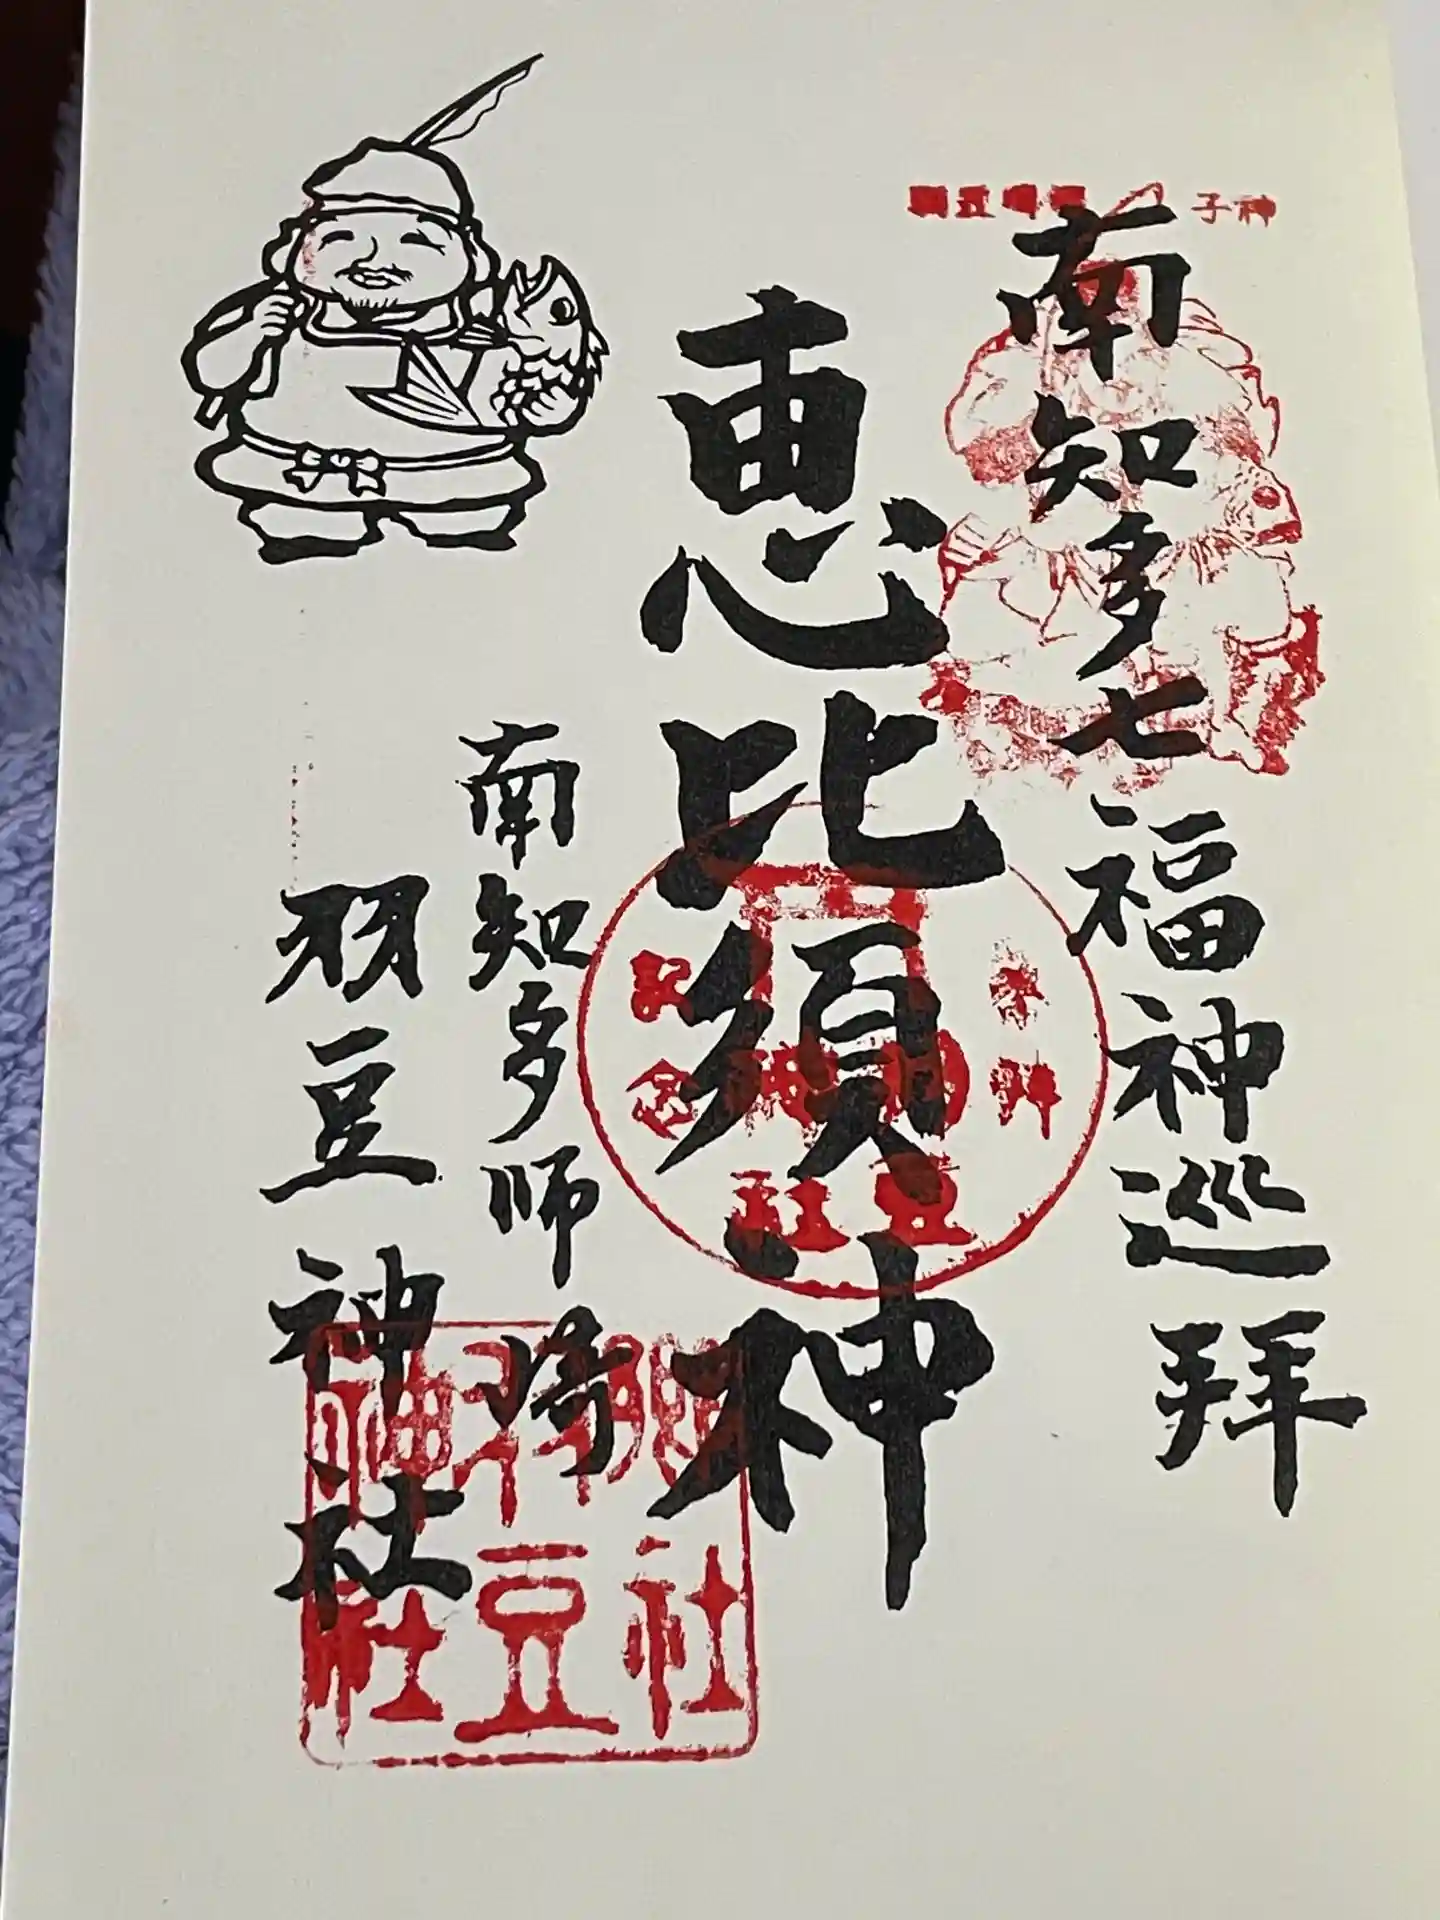 南知多七福神巡拝
恵比須神
南知多師崎
羽豆神社
参拝
記念
羽豆
神社